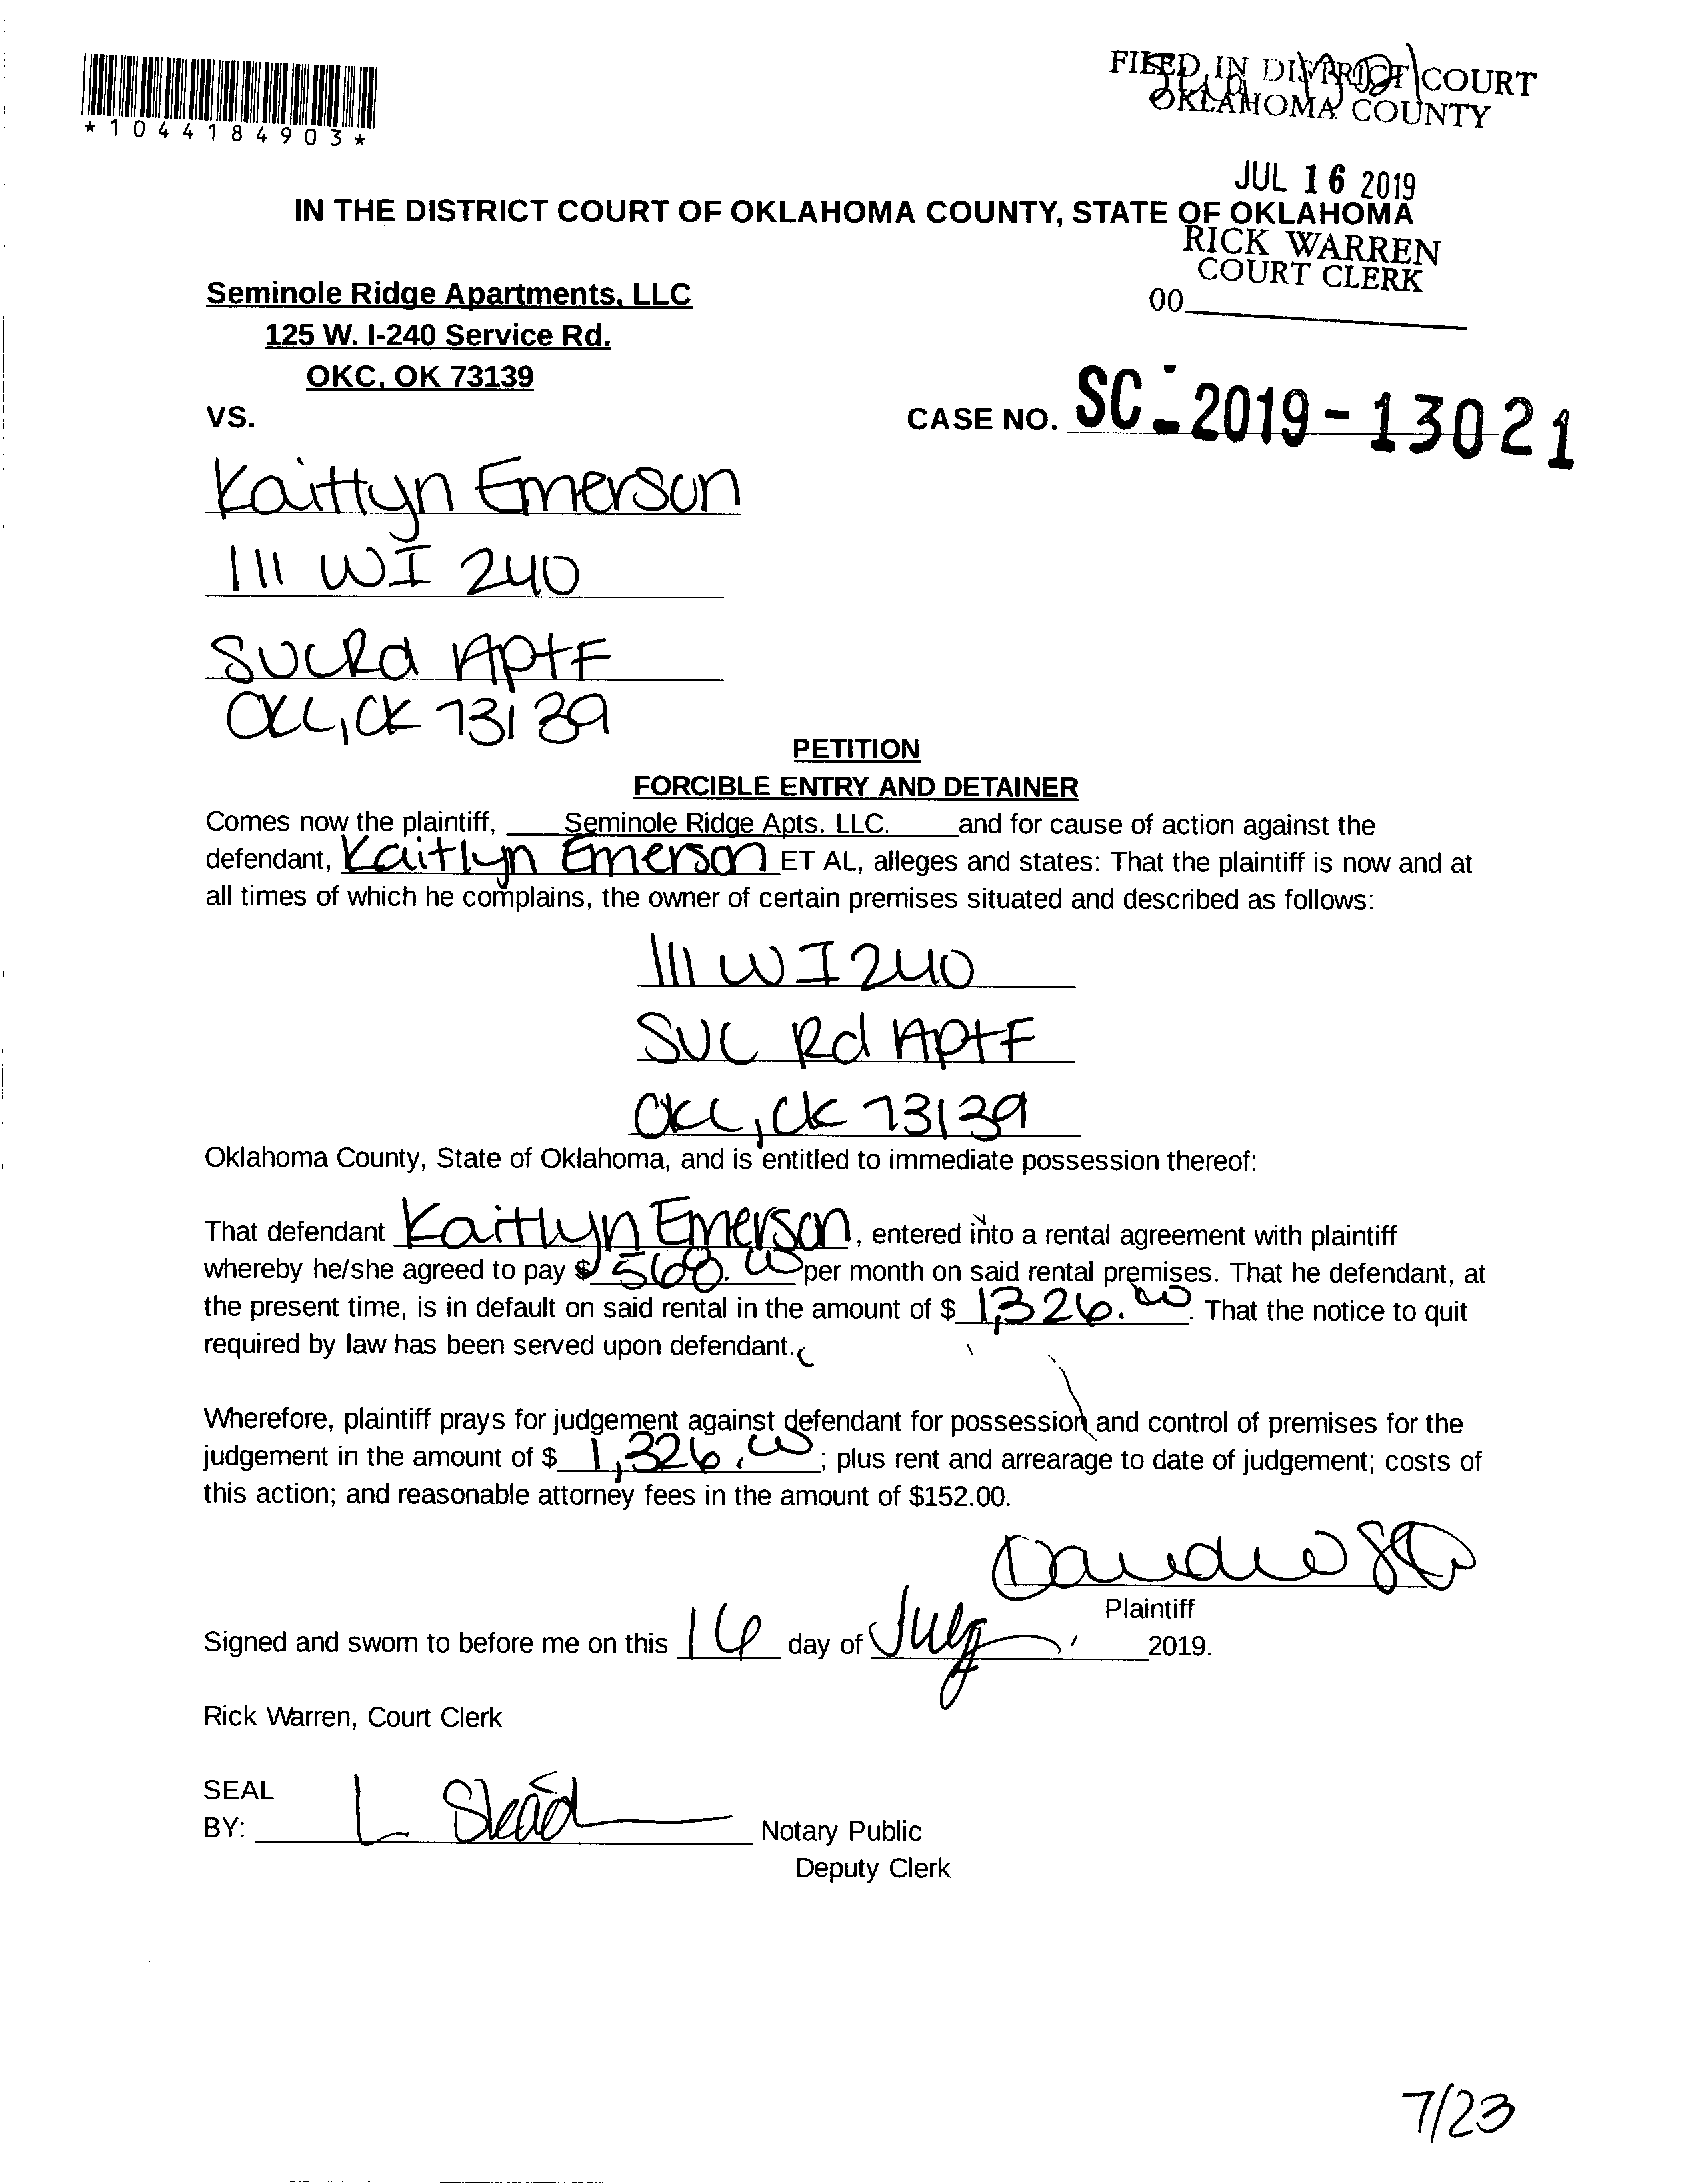 *1044184903*
FILED IN DISTRICT COURT
OKLAHOMA COUNTY
JUL 16 2019
IN THE DISTRICT COURT OF OKLAHOMA COUNTY, STATE OF OKLAHOMA
RICK WARREN
COURT CLERK
00
Seminole Ridge Apartments, LLC
125 W. I-240 Service Rd.
OKC, OK 73139
VS.
CASE NO. SC-2019-13021
Kaitlyn Emerson
111 W I 240
SVC Rd Apt F
OKC, OK 73139
PETITION
FORCIBLE ENTRY AND DETAINER
Comes now the plaintiff, Seminole Ridge Apts. LLC. and for cause of action against the
defendant, Kaitlyn Emerson ET AL, alleges and states: That the plaintiff is now and at
all times of which he complains, the owner of certain premises situated and described as follows:
111 W I 240
SVC Rd Apt F
OKC, OK 73139
Oklahoma County, State of Oklahoma, and is entitled to immediate possession thereof:
That defendant Kaitlyn Emerson, entered into a rental agreement with plaintiff
whereby he/she agreed to pay $ 560.00 per month on said rental premises. That he defendant, at
the present time, is in default on said rental in the amount of $ 1,326.00. That the notice to quit
required by law has been served upon defendant.
Wherefore, plaintiff prays for judgement against defendant for possession and control of premises for the
judgement in the amount of $ 1,326.00; plus rent and arrearage to date of judgement; costs of
this action; and reasonable attorney fees in the amount of $152.00.
Plaintiff
Signed and sworn to before me on this 16 day of July 2019.
Rick Warren, Court Clerk
SEAL
BY: Notary Public
Deputy Clerk
7/23